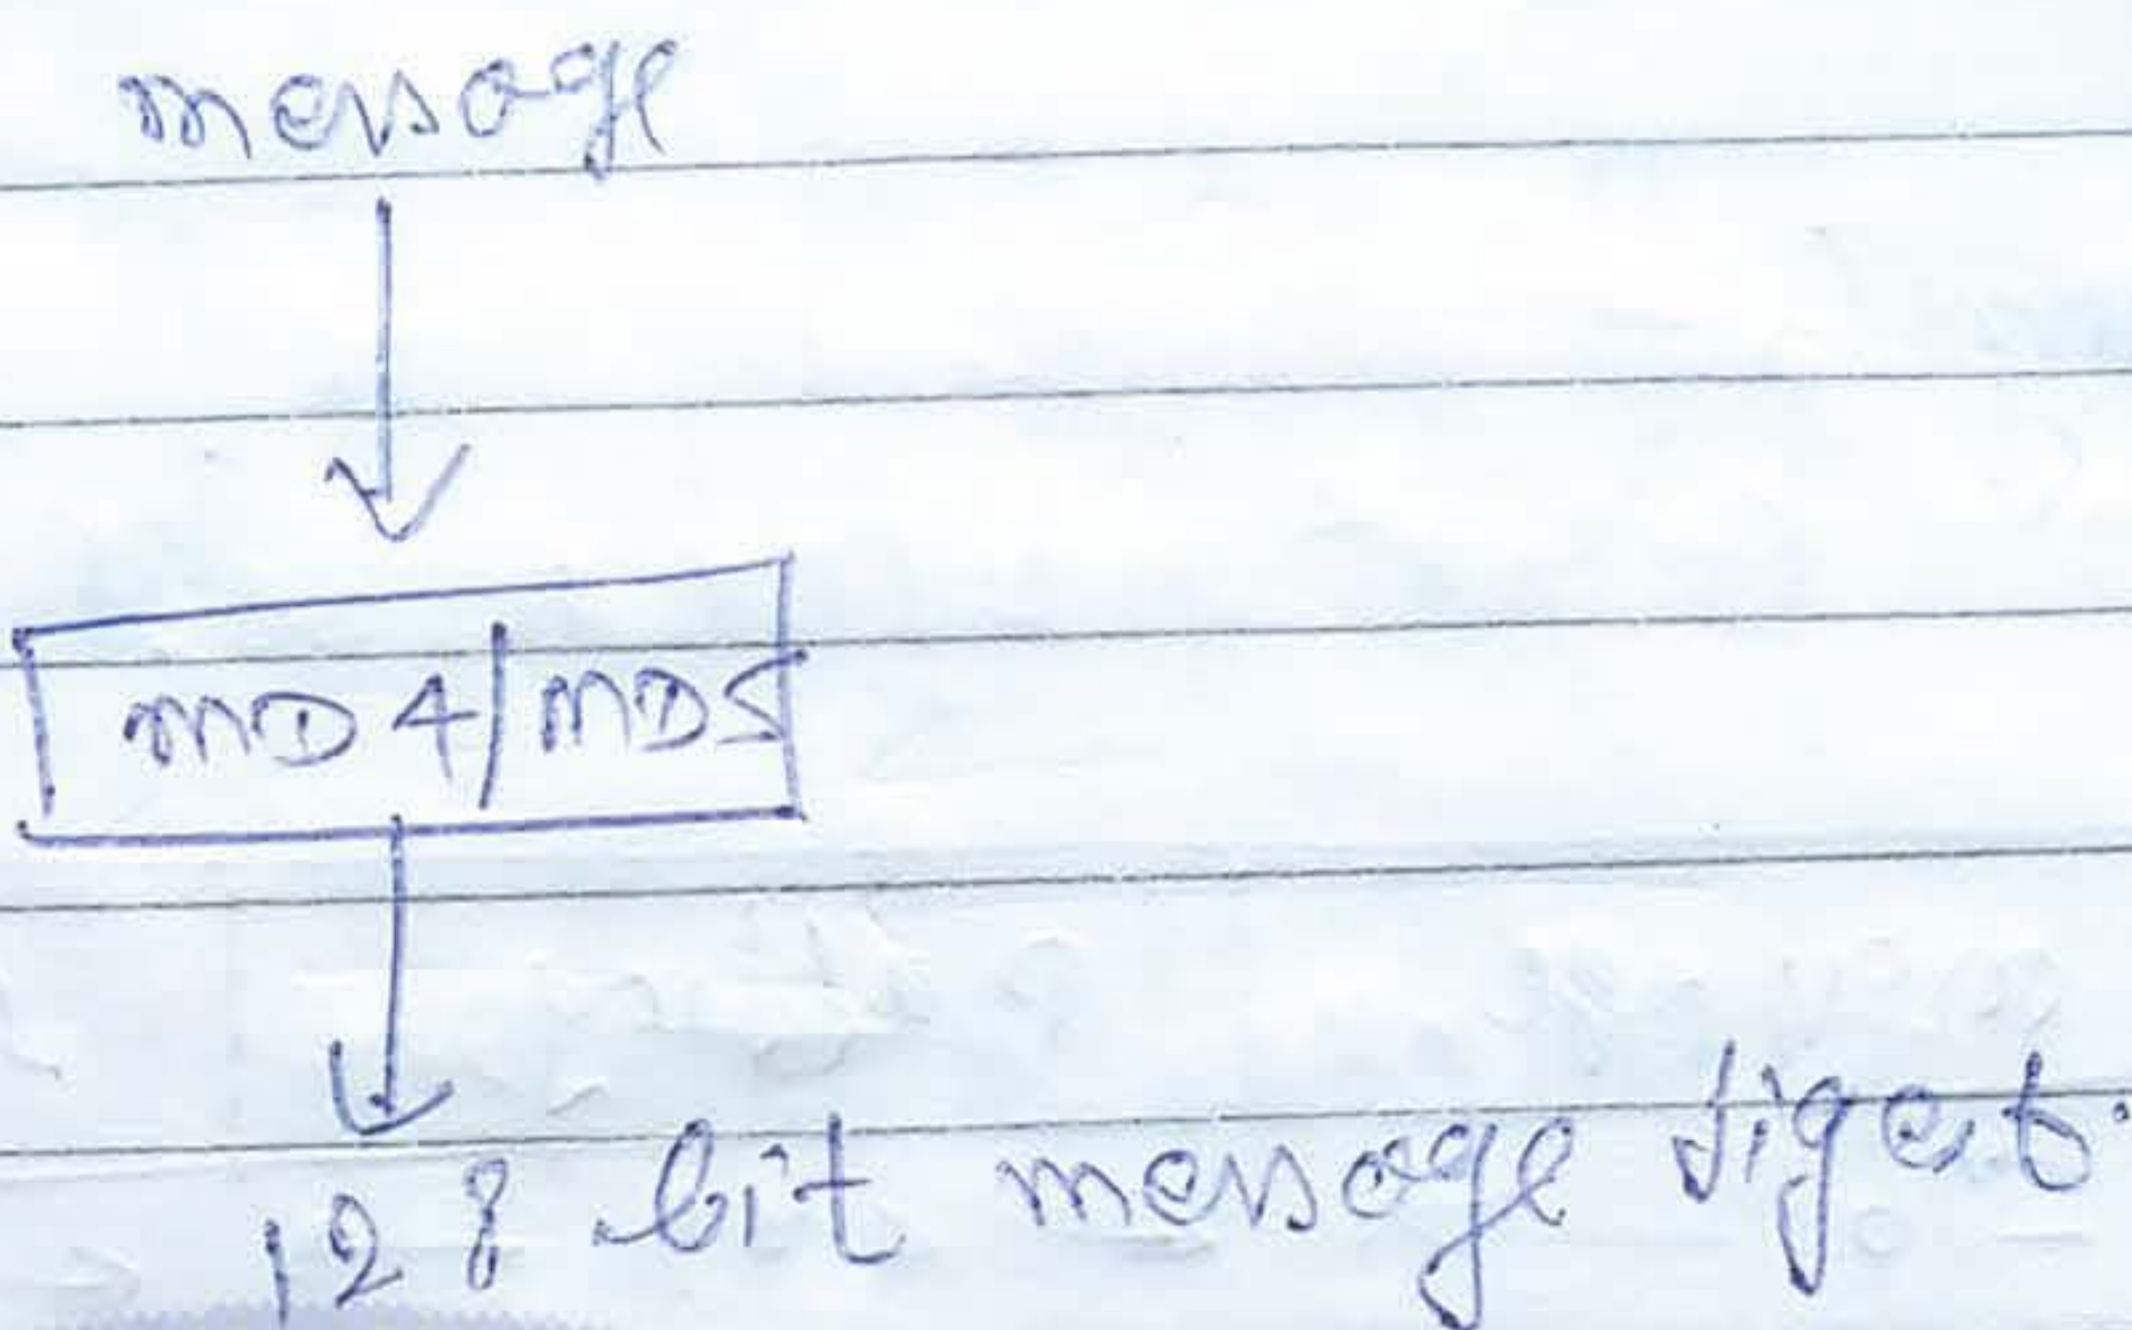 message
MD4/MD5
128 bit message digest.